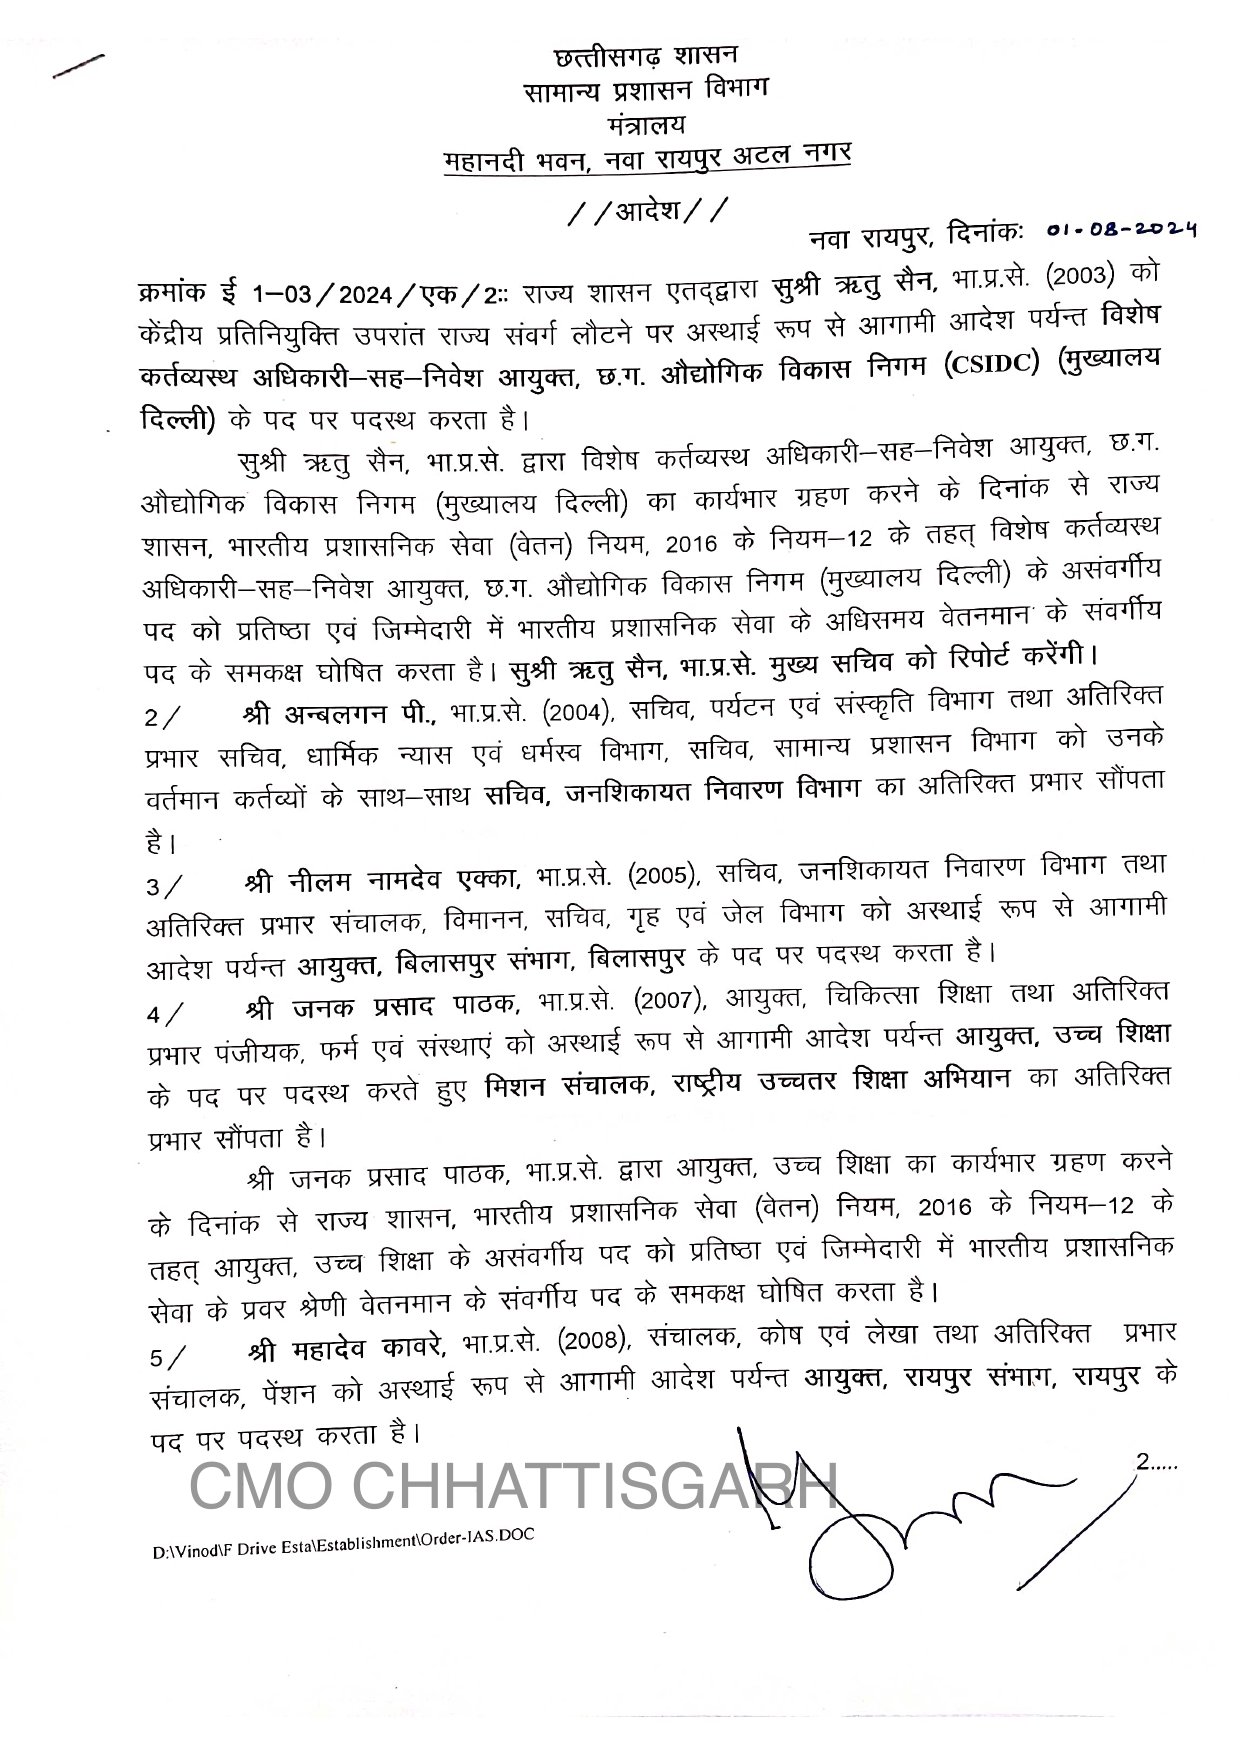 छत्तीसगढ़ शासन
सामान्य प्रशासन विभाग
मंत्रालय
महानदी भवन, नवा रायपुर अटल नगर
//आदेश//
नवा रायपुर, दिनांकः 01-08-2024
क्रमांक ई 1–03/2024/एक/2:: राज्य शासन एतद्द्वारा सुश्री ऋतु सैन, भा.प्र.से. (2003) को
केंद्रीय प्रतिनियुक्ति उपरांत राज्य संवर्ग लौटने पर अस्थाई रूप से आगामी आदेश पर्यन्त विशेष
कर्तव्यस्थ अधिकारी–सह–निवेश आयुक्त, छ.ग. औद्योगिक विकास निगम (CSIDC) (मुख्यालय
दिल्ली) के पद पर पदस्थ करता है।
सुश्री ऋतु सैन, भा.प्र.से. द्वारा विशेष कर्तव्यस्थ अधिकारी–सह–निवेश आयुक्त, छ.ग.
औद्योगिक विकास निगम (मुख्यालय दिल्ली) का कार्यभार ग्रहण करने के दिनांक से राज्य
शासन, भारतीय प्रशासनिक सेवा (वेतन) नियम, 2016 के नियम–12 के तहत् विशेष कर्तव्यस्थ
अधिकारी–सह–निवेश आयुक्त, छ.ग. औद्योगिक विकास निगम (मुख्यालय दिल्ली) के असंवर्गीय
पद को प्रतिष्ठा एवं जिम्मेदारी में भारतीय प्रशासनिक सेवा के अधिसमय वेतनमान के संवर्गीय
पद के समकक्ष घोषित करता है। सुश्री ऋतु सैन, भा.प्र.से. मुख्य सचिव को रिपोर्ट करेंगी।
2/ श्री अन्बलगन पी., भा.प्र.से. (2004), सचिव, पर्यटन एवं संस्कृति विभाग तथा अतिरिक्त
प्रभार सचिव, धार्मिक न्यास एवं धर्मस्व विभाग, सचिव, सामान्य प्रशासन विभाग को उनके
वर्तमान कर्तव्यों के साथ–साथ सचिव, जनशिकायत निवारण विभाग का अतिरिक्त प्रभार सौंपता
है।
3/ श्री नीलम नामदेव एक्का, भा.प्र.से. (2005), सचिव, जनशिकायत निवारण विभाग तथा
अतिरिक्त प्रभार संचालक, विमानन, सचिव, गृह एवं जेल विभाग को अस्थाई रूप से आगामी
आदेश पर्यन्त आयुक्त, बिलासपुर संभाग, बिलासपुर के पद पर पदस्थ करता है।
4/ श्री जनक प्रसाद पाठक, भा.प्र.से. (2007), आयुक्त, चिकित्सा शिक्षा तथा अतिरिक्त
प्रभार पंजीयक, फर्म एवं संस्थाएं को अस्थाई रूप से आगामी आदेश पर्यन्त आयुक्त, उच्च शिक्षा
के पद पर पदस्थ करते हुए मिशन संचालक, राष्ट्रीय उच्चतर शिक्षा अभियान का अतिरिक्त
प्रभार सौंपता है।
श्री जनक प्रसाद पाठक, भा.प्र.से. द्वारा आयुक्त, उच्च शिक्षा का कार्यभार ग्रहण करने
के दिनांक से राज्य शासन, भारतीय प्रशासनिक सेवा (वेतन) नियम, 2016 के नियम–12 के
तहत् आयुक्त, उच्च शिक्षा के असंवर्गीय पद को प्रतिष्ठा एवं जिम्मेदारी में भारतीय प्रशासनिक
सेवा के प्रवर श्रेणी वेतनमान के संवर्गीय पद के समकक्ष घोषित करता है।
5/ श्री महादेव कावरे, भा.प्र.से. (2008), संचालक, कोष एवं लेखा तथा अतिरिक्त प्रभार
संचालक, पेंशन को अस्थाई रूप से आगामी आदेश पर्यन्त आयुक्त, रायपुर संभाग, रायपुर के
पद पर पदस्थ करता है।
2.....
CMO CHHATTISGARH
D:\Vinod\F Drive Esta\Establishment\Order-IAS.DOC